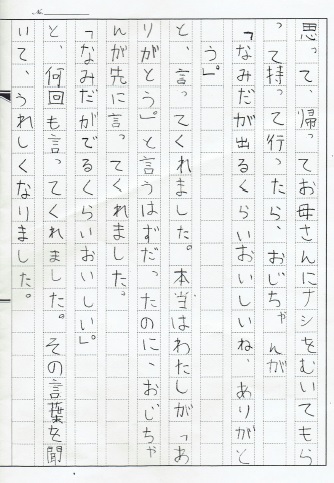 思って、帰ってお母さんにナシをむいてもら
って持って行ったら、おじちゃんが
「なみだが出るくらいおいしいね、ありがと
う。」
と、言ってくれました。本当はわたしが「あ
りがとう。」と言うはずだったのに、おじちゃ
んが先に言ってくれました。
「なみだがでるくらいおいしい」。
と、何回も言ってくれました。その言葉を聞
いて、うれしくなりました。
No.